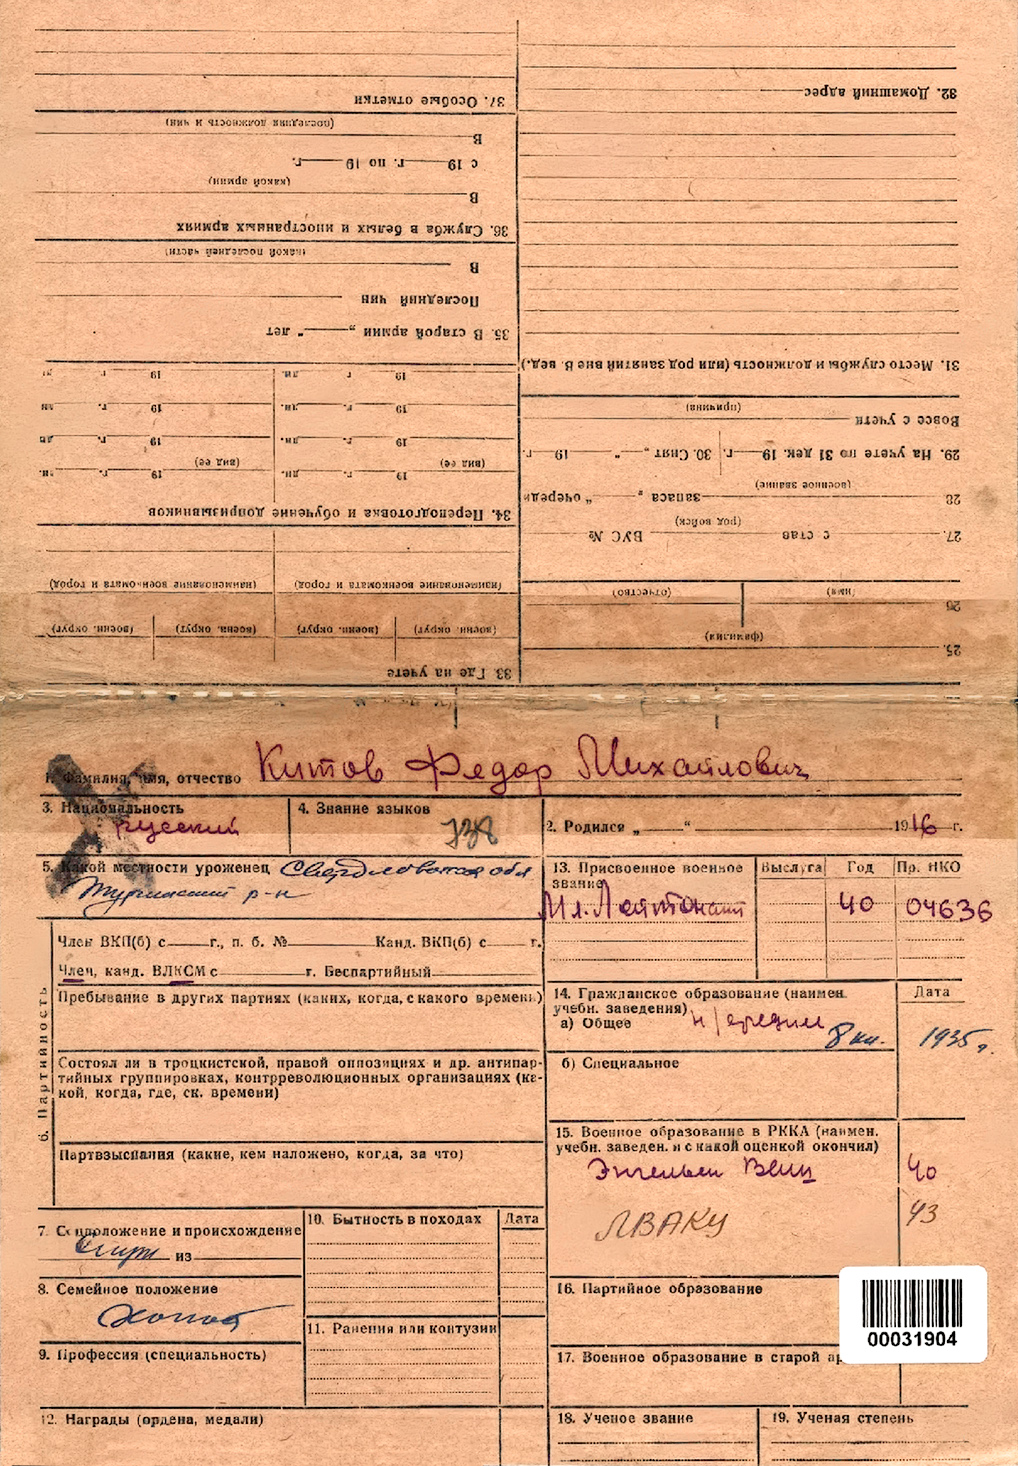 37. Особые отметки
(последняя должность и чин)
В
с 19 г. по 19 г.
(какой армии)
В
36. Служба в белых и иностранных армиях
(какой последней части)
В
Последний чин
35. В старой армии „ “ лет
19 г. дн. 19 г. дн.
19 г. дн. 19 г. дн.
19 г. дн. 19 г. дн.
(вид ее) (вид ее)
19 г. дн. 19 г. дн.
34. Переподготовка и обучение допризывников
(наименование военкомата и город) (наименование военкомата и город)
(военн. округ) (военн. округ) (военн. округ) (военн. округ)
33. Где на учете
32. Домашний адрес
31. Место службы и должность (или род занятий вне В. вед.)
(причина)
Вовсе с учета
29. На учете по 31 дек. 19 г. 30. Снят „ “ 19 г.
(военное звание)
28 запаса „ “ очереди
(род войск)
27. с став ВУС №
(имя) (отчество)
26
(фамилия)
25.
1. Фамилия, имя, отчество Китов Федор Михайлович
3. Национальность
русский
4. Знание языков
2. Родился „ “ 1916 г.
5. Какой местности уроженец Свердловская обл
Туринский р-н
13. Присвоенное военное звание
Выслуга Год Пр. НКО
Мл. Лейтенант 40 04636
6. Партийность
Член ВКП(б) с г., п. б. № Канд. ВКП(б) с г.
Член, канд. ВЛКСМ с г. Беспартийный
Пребывание в других партиях (каких, когда, с какого времени)
Состоял ли в троцкистской, правой оппозициях и др. антипар-
тийных группировках, контрреволюционных организациях (ка-
кой, когда, где, ск. времени)
Партвзыскания (какие, кем наложено, когда, за что)
14. Гражданское образование (наимен.
учебн. заведения)
Дата
а) Общее н/средн
8 кл. 1935 г.
б) Специальное
15. Военное образование в РККА (наимен.
учебн. заведен. и с какой оценкой окончил)
40
ЛВАКУ 43
7. Соцположение и происхождение
из
8. Семейное положение
Холост
9. Профессия (специальность)
10. Бытность в походах
Дата
11. Ранения или контузии
12. Награды (ордена, медали)
16. Партийное образование
00031904
17. Военное образование в старой
18. Ученое звание
19. Ученая степень